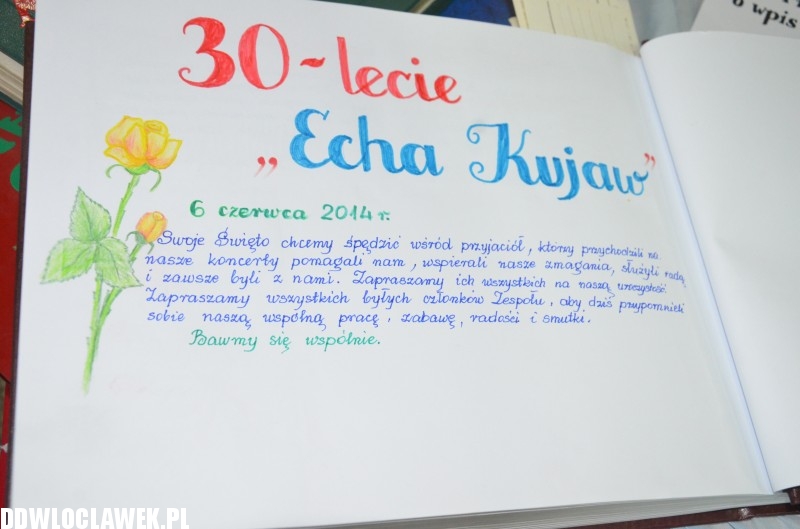 o wpis
30-lecie
„Echa Kujaw”
6 czerwca 2014 r.
Swoje Święto chcemy spędzić wśród przyjaciół, którzy przychodzili na
nasze koncerty pomagali nam, wspierali nasze zmagania, służyli radą
i zawsze byli z nami. Zapraszamy ich wszystkich na naszą uroczystość.
Zapraszamy wszystkich byłych członków Zespołu, aby dziś przypomnieli
sobie naszą wspólną pracę, zabawę, radości i smutki.
Bawmy się wspólnie.
DDWLOCLAWEK.PL